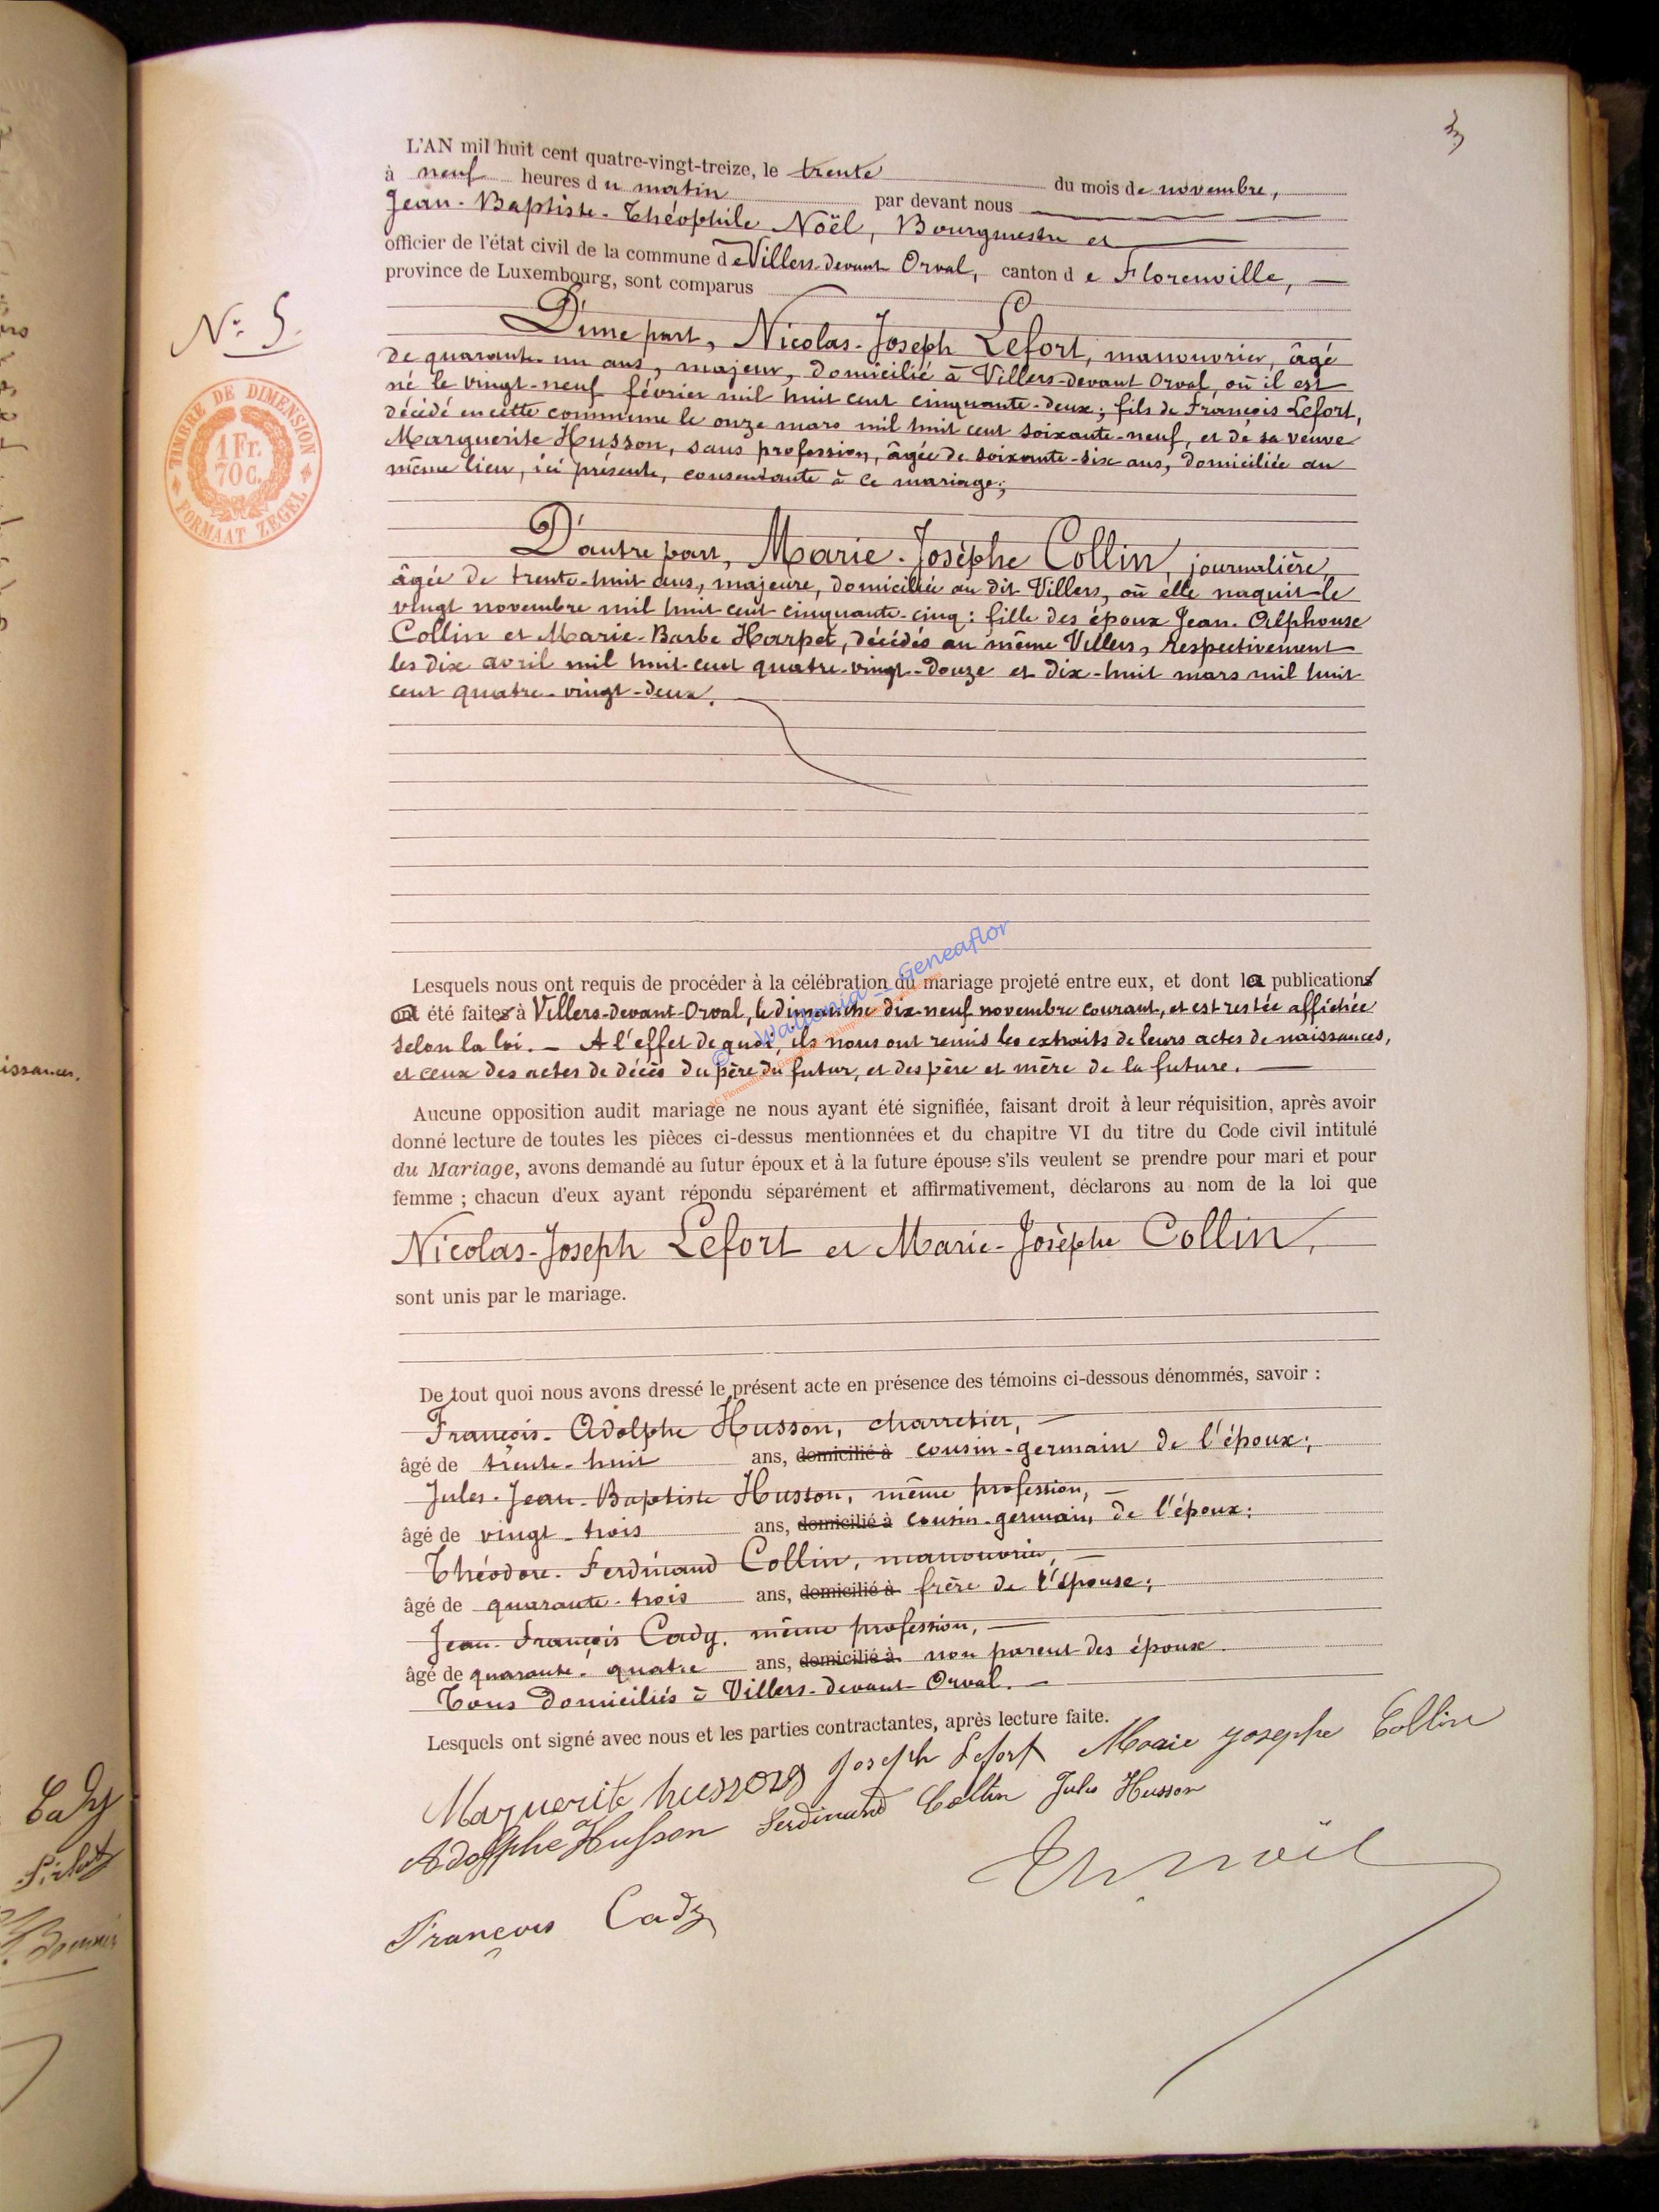 3
L'AN mil huit cent quatre-vingt-treize, le trente du mois de novembre,
à neuf heures du matin par devant nous
Jean-Baptiste-Théophile Noël, Bourgmestre et
officier de l'état civil de la commune de Villers-devant Orval, canton de Florenville,
province de Luxembourg, sont comparus
N° 5.
D'une part, Nicolas-Joseph Lefort, manouvrier, âgé
de quarante-un ans, majeur, domicilié à Villers-devant Orval où il est
né le vingt-neuf février mil huit cent cinquante-deux; fils de François Lefort,
décédé en cette commune le onze mars mil huit cent soixante-neuf, et de sa veuve
Marguerite Husson, sans profession, âgée de soixante-six ans, domiciliée au
même lieu, ici présente, consentante à ce mariage;
TIMBRE DE DIMENSION
1 Fr.
70 C.
FORMAAT ZEGEL
D'autre part, Marie-Josèphe Collin, journalière,
âgée de trente-huit ans, majeure, domiciliée au dit Villers, où elle naquit le
vingt novembre mil huit cent cinquante-cinq: fille des époux Jean-Alphonse
Collin et Marie-Barbe Harpet, décédés au même Villers, respectivement
les dix avril mil huit-cent quatre-vingt-douze et dix-huit mars mil huit
cent quatre-vingt-deux.
Lesquels nous ont requis de procéder à la célébration du mariage projeté entre eux, et dont la publications
été faites à Villers-devant-Orval, le dimanche dix-neuf novembre courant, et est restée affichée
selon la loi. — A l'effet de quoi, ils nous ont remis les extraits de leurs actes de naissances,
et ceux des actes de décès du père du futur, et des père et mère de la future.
© Wallonia - Geneaflor
Aucune opposition audit mariage ne nous ayant été signifiée, faisant droit à leur réquisition, après avoir
donné lecture de toutes les pièces ci-dessus mentionnées et du chapitre VI du titre du Code civil intitulé
du Mariage, avons demandé au futur époux et à la future épouse s'ils veulent se prendre pour mari et pour
femme ; chacun d'eux ayant répondu séparément et affirmativement, déclarons au nom de la loi que
Nicolas-Joseph Lefort et Marie-Josèphe Collin,
sont unis par le mariage.
De tout quoi nous avons dressé le présent acte en présence des témoins ci-dessous dénommés, savoir :
François-Adolphe Husson, charretier,
âgé de trente-huit ans, domicilié à cousin-germain de l'époux;
Jules-Jean-Baptiste Husson, même profession,
âgé de vingt-trois ans, domicilié à cousin-germain, de l'époux;
Théodore-Ferdinand Collin, manouvrier,
âgé de quarante-trois ans, domicilié à frère de l'épouse;
Jean-François Cady, même profession,
âgé de quarante-quatre ans, domicilié à non parent des époux.
Tous domiciliés à Villers-devant-Orval.
Lesquels ont signé avec nous et les parties contractantes, après lecture faite.
Marguerite husson Joseph Lefort Marie Josephe Collin
Adolphe Husson Ferdinand Collin Jules Husson
Th Noël
François Cady
issances.
Cady